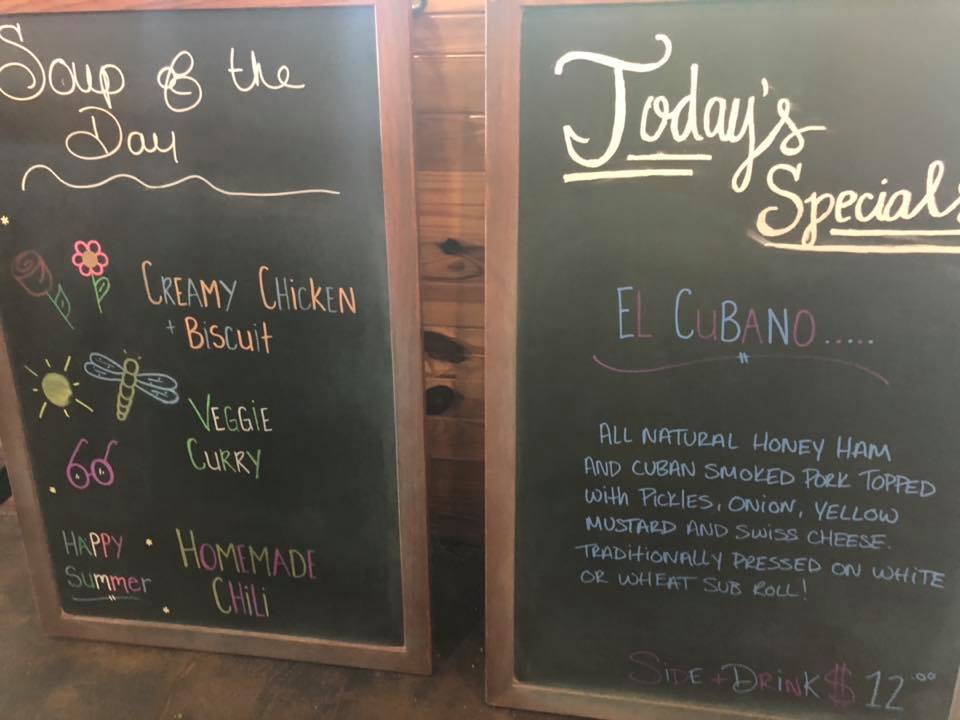 Soup of the
Day
CREAMY CHICKEN
+ BISCUIT
VEGGIE
CURRY
HAPPY
summer
HOMEMADE
CHILI
Today's
Specials
EL CUBANO.....
ALL NATURAL HONEY HAM
AND CUBAN SMOKED PORK TOPPED
with PICKLES, ONION, YELLOW
MUSTARD AND SWISS CHEESE.
TRADITIONALLY PRESSED ON WHITE
OR WHEAT SUB ROLL!
SIDE + DRINK $12.00